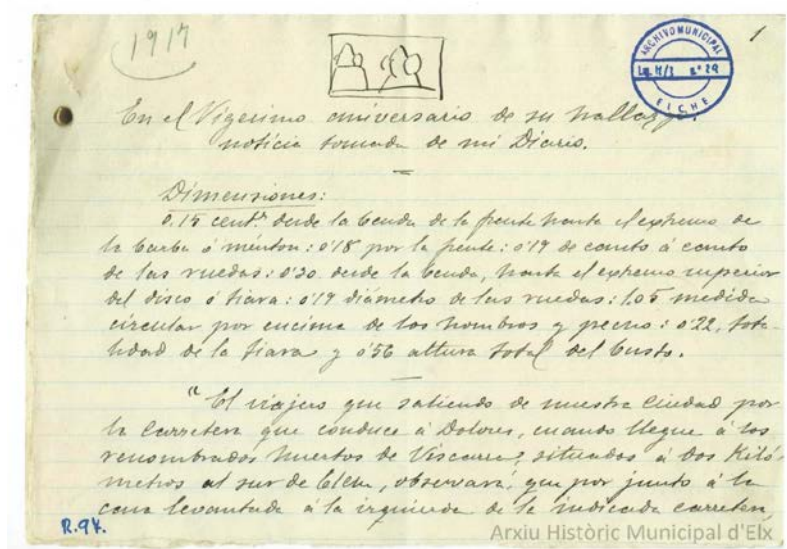 1917
1
ARCHIVO MUNICIPAL
ELCHE
En el Vigesimo aniversario de su hallazgo.
noticia tomada de mi Diario.
Dimensiones:
0.15 cent.s desde la benda de la frente hasta el extremo de
la barba ó menton: 0'18 por la frente: 0'19 de canto á canto
de las ruedas: 0'20 desde la benda, hasta el extremo superior
del disco ó tiara: 0'19 diámetro de las ruedas: 1,05 medida
circular por encima de los hombros y pecho: 0'22, tota-
lidad de la tiara y 0'56 altura total del busto.
"El viajero que saliendo de nuestra Ciudad por
la Carretera que conduce á Dolores, cuando llegue á los
renombrados huertos de Viscarra, situados á dos Kiló-
metros al sur de Elche, observará, que por junto á la
casa levantada á la izquierda de la indicada carretera,
R.94.
Arxiu Històric Municipal d'Elx